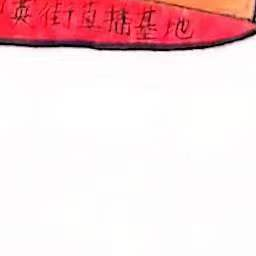 英街直播基地